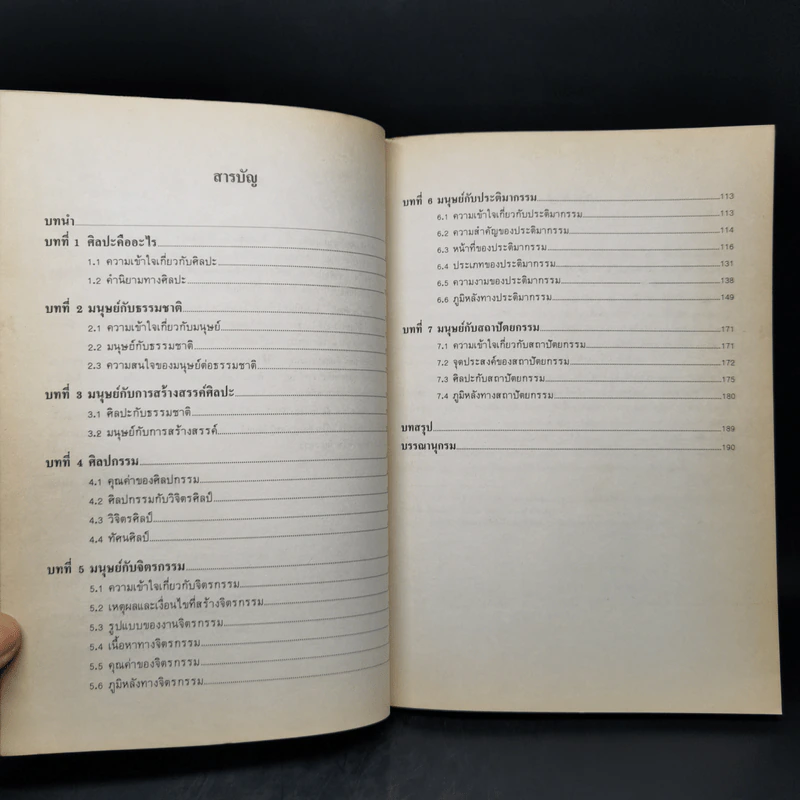 สารบัญ
บทนำ
บทที่ 1 ศิลปะคืออะไร
1.1 ความเข้าใจเกี่ยวกับศิลปะ
1.2 คำนิยามทางศิลปะ
บทที่ 2 มนุษย์กับธรรมชาติ
2.1 ความเข้าใจเกี่ยวกับมนุษย์
2.2 มนุษย์กับธรรมชาติ
2.3 ความสนใจของมนุษย์ต่อธรรมชาติ
บทที่ 3 มนุษย์กับการสร้างสรรค์ศิลปะ
3.1 ศิลปะกับธรรมชาติ
3.2 มนุษย์กับการสร้างสรรค์
บทที่ 4 ศิลปกรรม
4.1 คุณค่าของศิลปกรรม
4.2 ศิลปกรรมกับวิจิตรศิลป์
4.3 วิจิตรศิลป์
4.4 ทัศนศิลป์
บทที่ 5 มนุษย์กับจิตรกรรม
5.1 ความเข้าใจเกี่ยวกับจิตรกรรม
5.2 เหตุผลและเงื่อนไขที่สร้างจิตรกรรม
5.3 รูปแบบของงานจิตรกรรม
5.4 เนื้อหาทางจิตรกรรม
5.5 คุณค่าของจิตรกรรม
5.6 ภูมิหลังทางจิตรกรรม
บทที่ 6 มนุษย์กับประติมากรรม 113
6.1 ความเข้าใจเกี่ยวกับประติมากรรม 113
6.2 ความสำคัญของประติมากรรม 114
6.3 หน้าที่ของประติมากรรม 116
6.4 ประเภทของประติมากรรม 131
6.5 ความงามของประติมากรรม 138
6.6 ภูมิหลังทางประติมากรรม 149
บทที่ 7 มนุษย์กับสถาปัตยกรรม 171
7.1 ความเข้าใจเกี่ยวกับสถาปัตยกรรม 171
7.2 จุดประสงค์ของสถาปัตยกรรม 172
7.3 ศิลปะกับสถาปัตยกรรม 175
7.4 ภูมิหลังทางสถาปัตยกรรม 180
บทสรุป 189
บรรณานุกรม 190